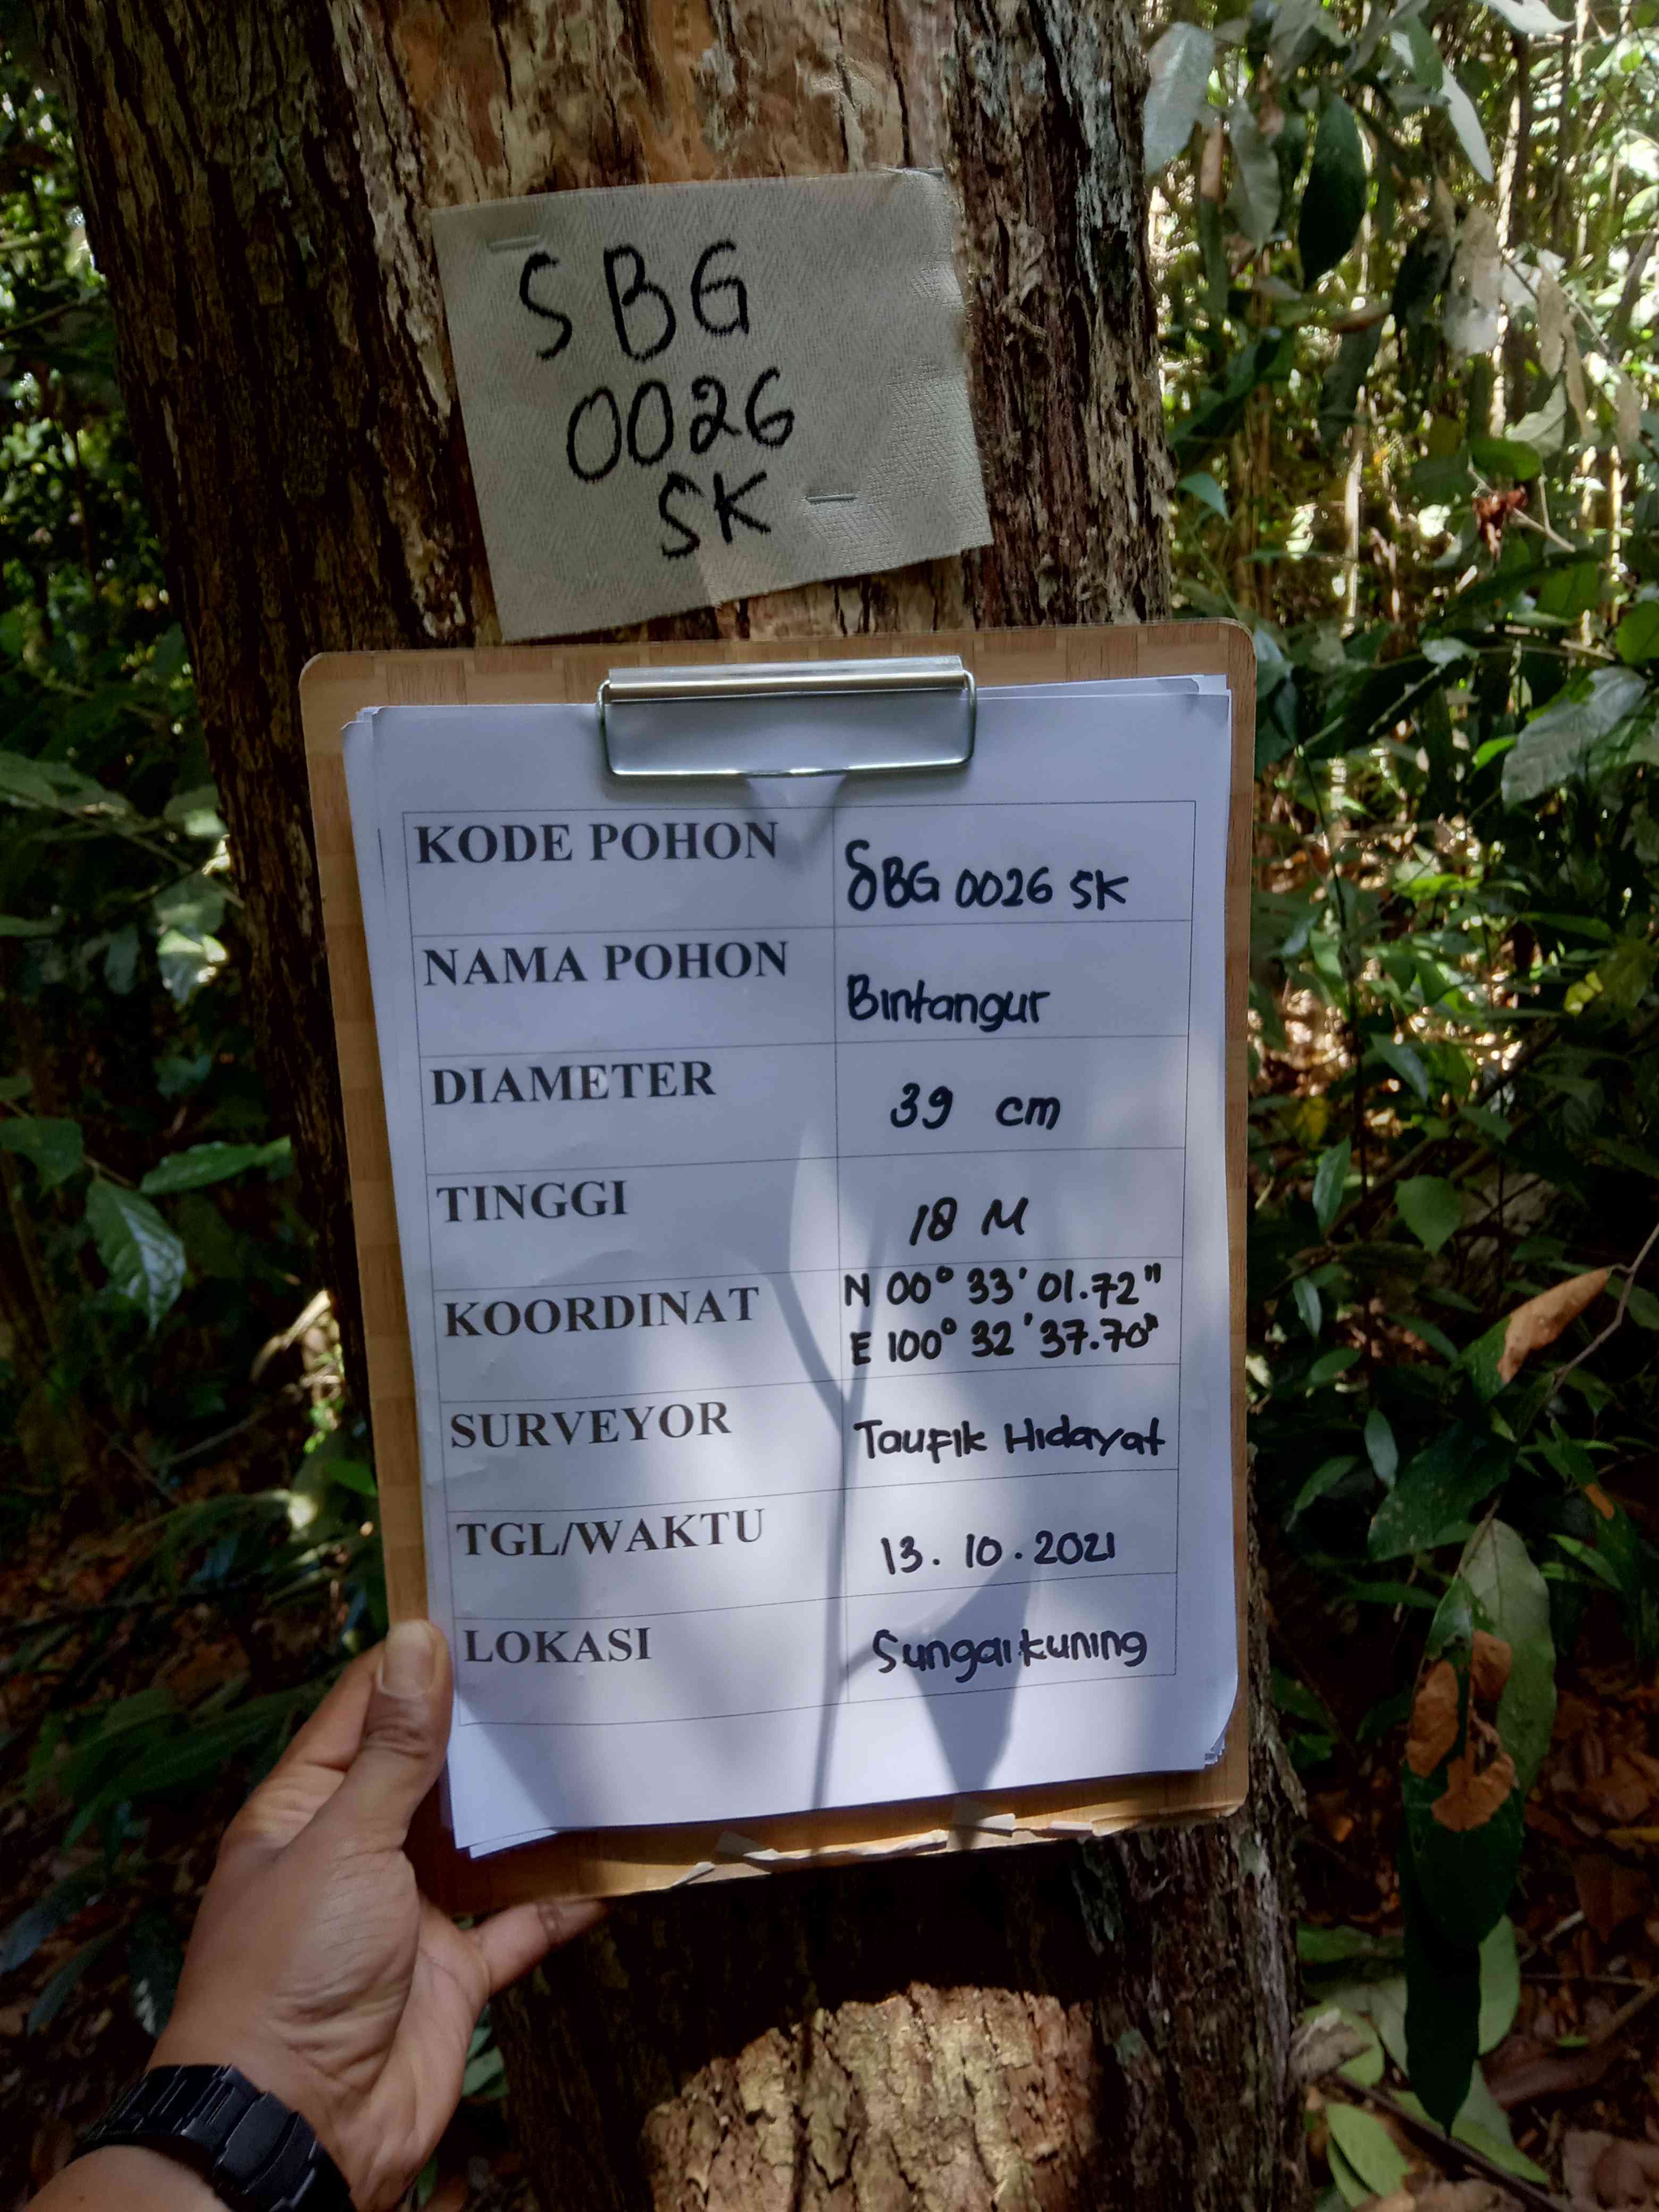 SBG
0026
SK
KODE POHON
SBG 0026 SK
NAMA POHON
Bintangur
DIAMETER
39 cm
TINGGI
18 M
KOORDINAT
N 00° 33' 01.72"
E 100° 32' 37.70"
SURVEYOR
Taufik Hidayat
TGL/WAKTU
13.10.2021
LOKASI
Sungaikuning